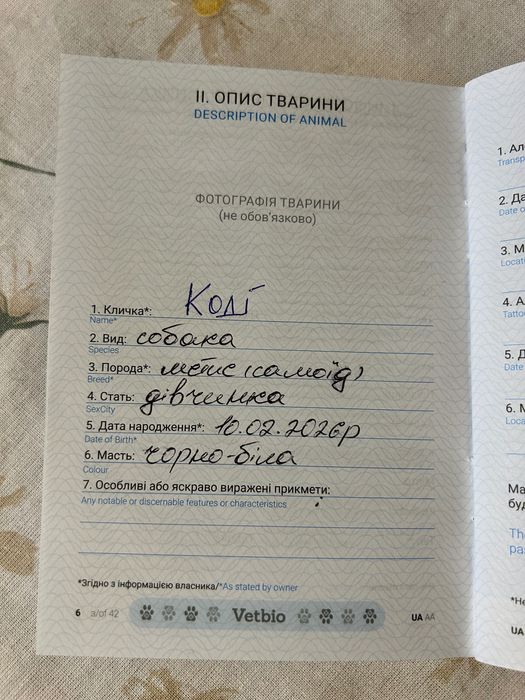 II. ОПИС ТВАРИНИ
DESCRIPTION OF ANIMAL
ФОТОГРАФІЯ ТВАРИНИ
(не обов'язково)
1. Кличка*: Колі
Name*
2. Вид: собака
Species
3. Порода*: метис (самоїд)
Breed*
4. Стать: дівчинка
SexCity
5. Дата народження*: 10.02.2026р
Date of Birth*
6. Масть: чорно-біла
Colour
7. Особливі або яскраво виражені прикмети:
Any notable or discernable features or characteristics
*Згідно з інформацією власника/*As stated by owner
6 з/of 42 Vetbio UA АА
1. Ал
Transp
2. Да
Date o
3. М
Locati
4. А
Tatto
5. Д
Date
6. М
Loca
Ма
буд
Th
pa
*Не
UA